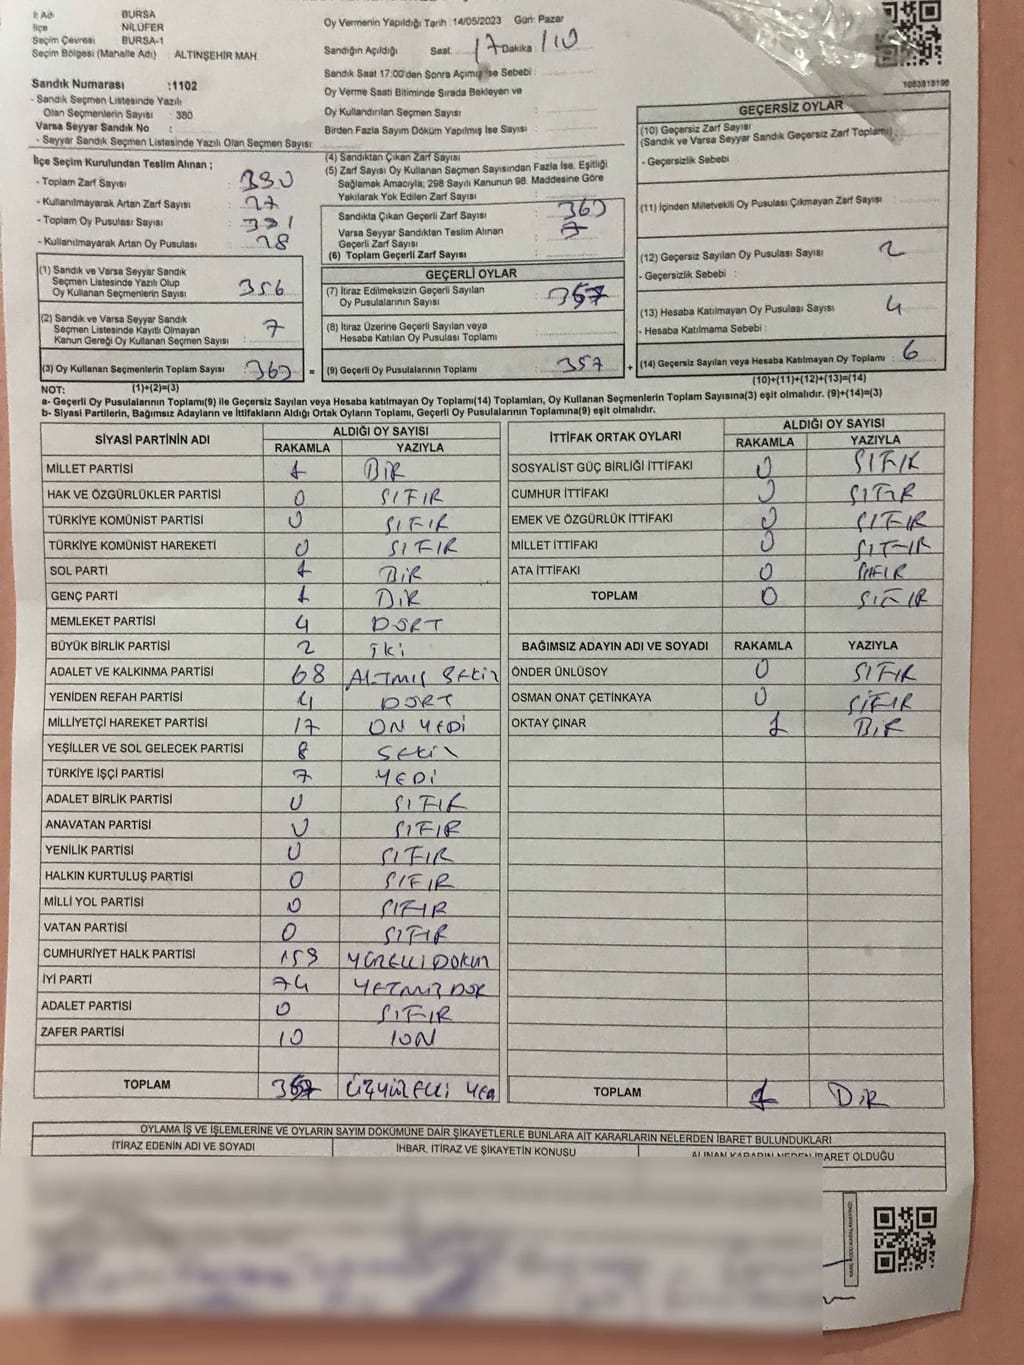 İl Adı BURSA
İlçe NİLÜFER
Seçim Çevresi BURSA-1
Seçim Bölgesi (Mahalle Adı) ALTINŞEHİR MAH
Sandık Numarası :1102
- Sandık Seçmen Listesinde Yazılı
Olan Seçmenlerin Sayısı : 380
Varsa Seyyar Sandık No :
- Seyyar Sandık Seçmen Listesinde Yazılı Olan Seçmen Sayısı:
İlçe Seçim Kurulundan Teslim Alınan ;
- Toplam Zarf Sayısı : 390
- Kullanılmayarak Artan Zarf Sayısı : 27
- Toplam Oy Pusulası Sayısı : 391
- Kullanılmayarak Artan Oy Pusulası : 28
(1) Sandık ve Varsa Seyyar Sandık
Seçmen Listesinde Yazılı Olup
Oy Kullanan Seçmenlerin Sayısı : 356
(2) Sandık ve Varsa Seyyar Sandık
Seçmen Listesinde Kayıtlı Olmayan
Kanun Gereği Oy Kullanan Seçmen Sayısı : 7
(3) Oy Kullanan Seçmenlerin Toplam Sayısı : 363 =
Oy Vermenin Yapıldığı Tarih :14/05/2023 Gün: Pazar
Sandığın Açıldığı Saat: 17 Dakika / 10
Sandık Saat 17:00'den Sonra Açılmış İse Sebebi :
Oy Verme Saati Bitiminde Sırada Bekleyen ve
Oy Kullandırılan Seçmen Sayısı :
Birden Fazla Sayım Döküm Yapılmış İse Sayısı :
(4) Sandıktan Çıkan Zarf Sayısı :
(5) Zarf Sayısı Oy Kullanan Seçmen Sayısından Fazla İse, Eşitliği
Sağlamak Amacıyla; 298 Sayılı Kanunun 98. Maddesine Göre
Yakılarak Yok Edilen Zarf Sayısı :
Sandıkta Çıkan Geçerli Zarf Sayısı : 363
Varsa Seyyar Sandıktan Teslim Alınan
Geçerli Zarf Sayısı :
(6) Toplam Geçerli Zarf Sayısı :
GEÇERLİ OYLAR
(7) İtiraz Edilmeksizin Geçerli Sayılan
Oy Pusulalarının Sayısı : 357
(8) İtiraz Üzerine Geçerli Sayılan veya
Hesaba Katılan Oy Pusulası Toplamı :
(9) Geçerli Oy Pusulalarının Toplamı : 357 +
1083818196
GEÇERSİZ OYLAR
(10) Geçersiz Zarf Sayısı
(Sandık ve Varsa Seyyar Sandık Geçersiz Zarf Toplamı) :
- Geçersizlik Sebebi
(11) İçinden Milletvekili Oy Pusulası Çıkmayan Zarf Sayısı :
(12) Geçersiz Sayılan Oy Pusulası Sayısı : 2
- Geçersizlik Sebebi :
(13) Hesaba Katılmayan Oy Pusulası Sayısı : 4
- Hesaba Katılmama Sebebi :
(14) Geçersiz Sayılan veya Hesaba Katılmayan Oy Toplamı : 6
NOT: (1)+(2)=(3) (10)+(11)+(12)+(13)=(14)
a- Geçerli Oy Pusulalarının Toplamı(9) ile Geçersiz Sayılan veya Hesaba katılmayan Oy Toplamı(14) Toplamları, Oy Kullanan Seçmenlerin Toplam Sayısına(3) eşit olmalıdır. (9)+(14)=(3)
b- Siyasi Partilerin, Bağımsız Adayların ve İttifakların Aldığı Ortak Oyların Toplamı, Geçerli Oy Pusulalarının Toplamına(9) eşit olmalıdır.
SİYASİ PARTİNİN ADI ALDIĞI OY SAYISI
RAKAMLA YAZIYLA
MİLLET PARTİSİ 1 BİR
HAK VE ÖZGÜRLÜKLER PARTİSİ 0 SIFIR
TÜRKİYE KOMÜNİST PARTİSİ 0 SIFIR
TÜRKİYE KOMÜNİST HAREKETİ 0 SIFIR
SOL PARTİ 1 BİR
GENÇ PARTİ 1 BİR
MEMLEKET PARTİSİ 4 DÖRT
BÜYÜK BİRLİK PARTİSİ 2 İKİ
ADALET VE KALKINMA PARTİSİ 68 ALTMIŞ SEKİZ
YENİDEN REFAH PARTİSİ 4 DÖRT
MİLLİYETÇİ HAREKET PARTİSİ 17 ON YEDİ
YEŞİLLER VE SOL GELECEK PARTİSİ 8 SEKİZ
TÜRKİYE İŞÇİ PARTİSİ 7 YEDİ
ADALET BİRLİK PARTİSİ 0 SIFIR
ANAVATAN PARTİSİ 0 SIFIR
YENİLİK PARTİSİ 0 SIFIR
HALKIN KURTULUŞ PARTİSİ 0 SIFIR
MİLLİ YOL PARTİSİ 0 SIFIR
VATAN PARTİSİ 0 SIFIR
CUMHURİYET HALK PARTİSİ 159 YÜZELLİ DOKUZ
İYİ PARTİ 74 YETMİŞ DÖR
ADALET PARTİSİ 0 SIFIR
ZAFER PARTİSİ 10 ION
TOPLAM 357 ÜÇYÜZELLİ YED
İTTİFAK ORTAK OYLARI ALDIĞI OY SAYISI
RAKAMLA YAZIYLA
SOSYALİST GÜÇ BİRLİĞİ İTTİFAKI 0 SIFIR
CUMHUR İTTİFAKI 0 SIFIR
EMEK VE ÖZGÜRLÜK İTTİFAKI 0 SIFIR
MİLLET İTTİFAKI 0 SIFIR
ATA İTTİFAKI 0 SIFIR
TOPLAM 0 SIFIR
BAĞIMSIZ ADAYIN ADI VE SOYADI RAKAMLA YAZIYLA
ÖNDER ÜNLÜSOY 0 SIFIR
OSMAN ONAT ÇETİNKAYA 0 SIFIR
OKTAY ÇINAR 1 BİR
TOPLAM 1 BİR
OYLAMA İŞ VE İŞLEMLERİNE VE OYLARIN SAYIM DÖKÜMÜNE DAİR ŞİKAYETLERLE BUNLARA AİT KARARLARIN NELERDEN İBARET BULUNDUKLARI
İTİRAZ EDENİN ADI VE SOYADI İHBAR, İTİRAZ VE ŞİKAYETİN KONUSU ALINAN KARARIN NEDEN İBARET OLDUĞU